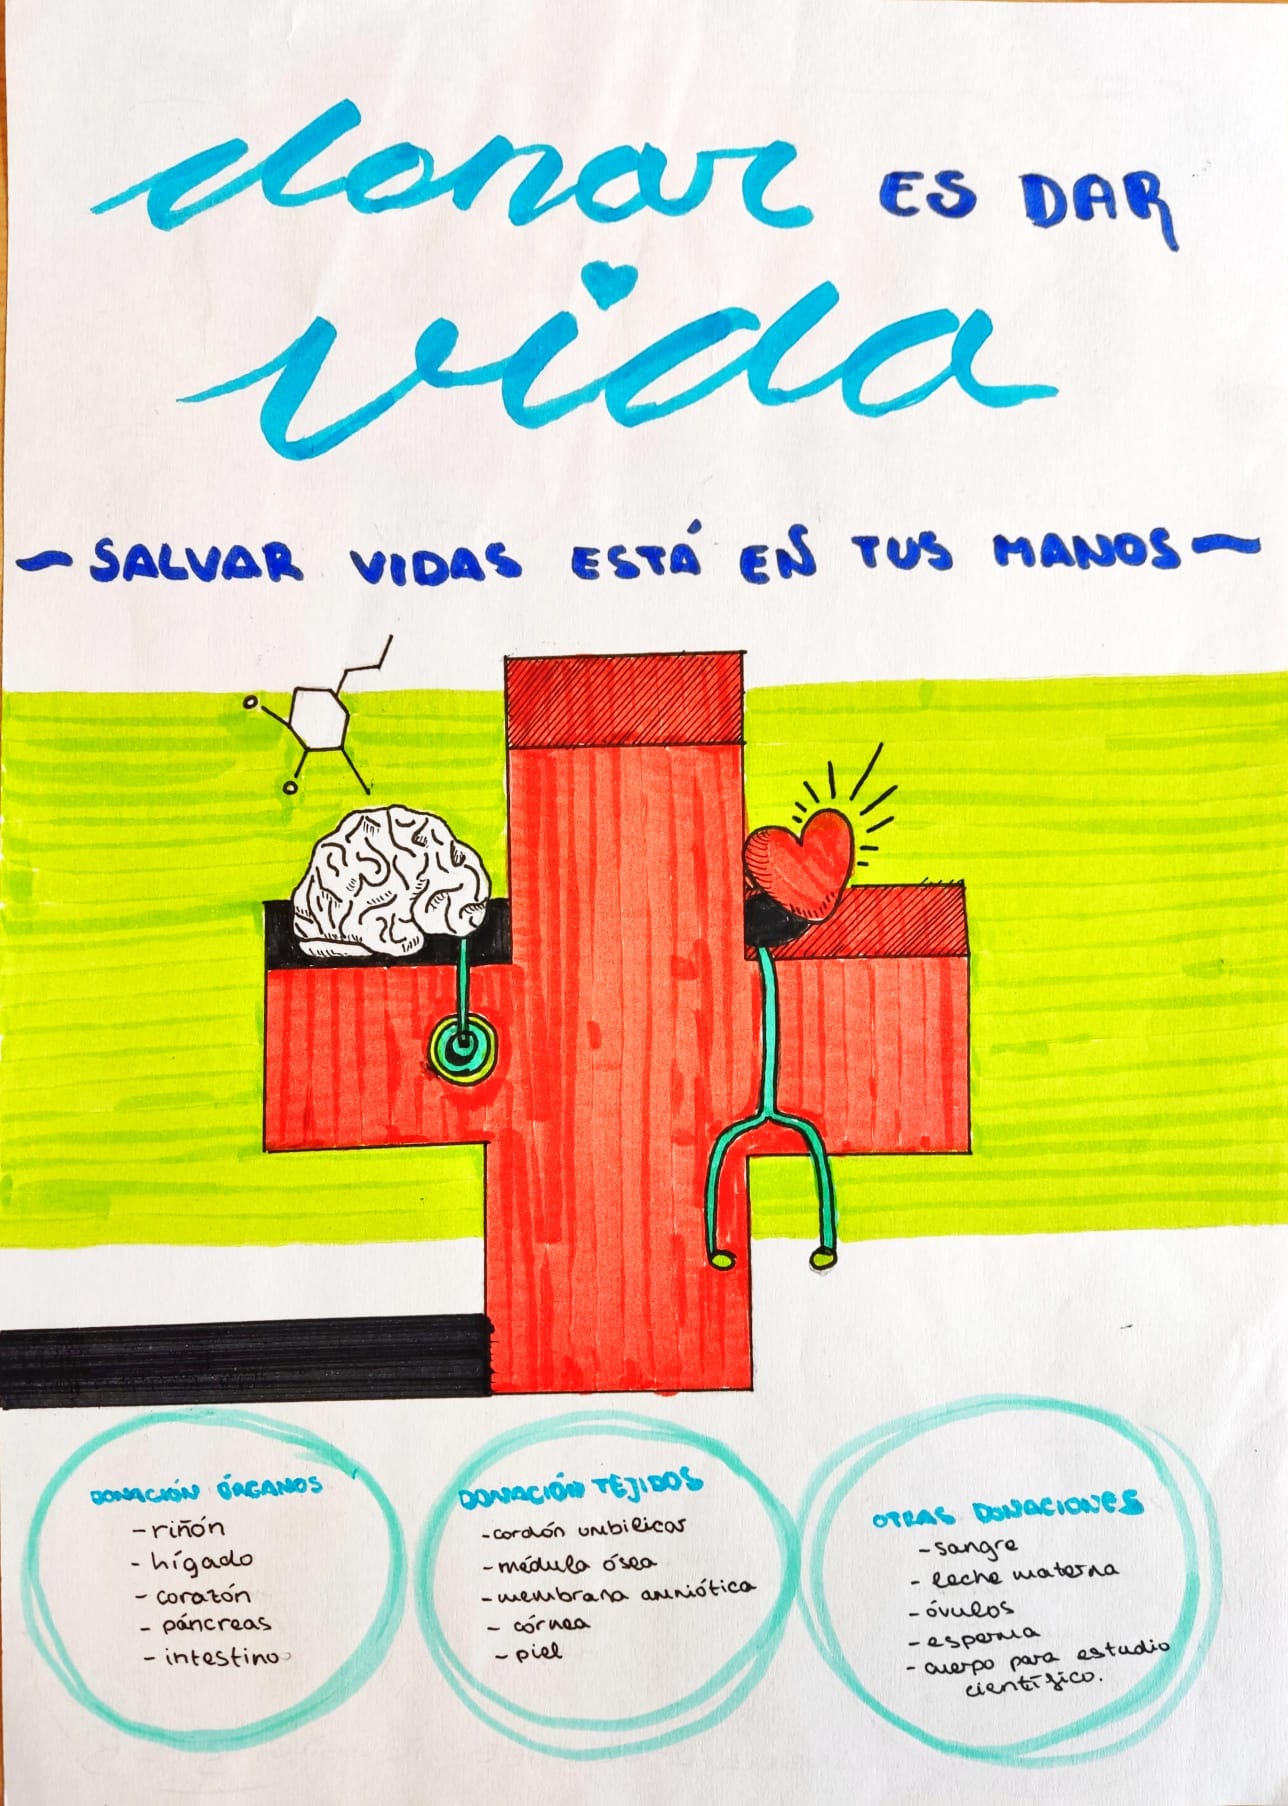 donar ES DAR
vida
~SALVAR VIDAS ESTÁ EN TUS MANOS~
DONACIÓN ÓRGANOS
- riñón
- hígado
- corazón
- páncreas
- intestino
DONACIÓN TEJIDOS
- cordón umbilical
- médula ósea
- membrana amniótica
- córnea
- piel
OTRAS DONACIONES
- sangre
- leche materna
- óvulos
- esperma
- cuerpo para estudio
científico.